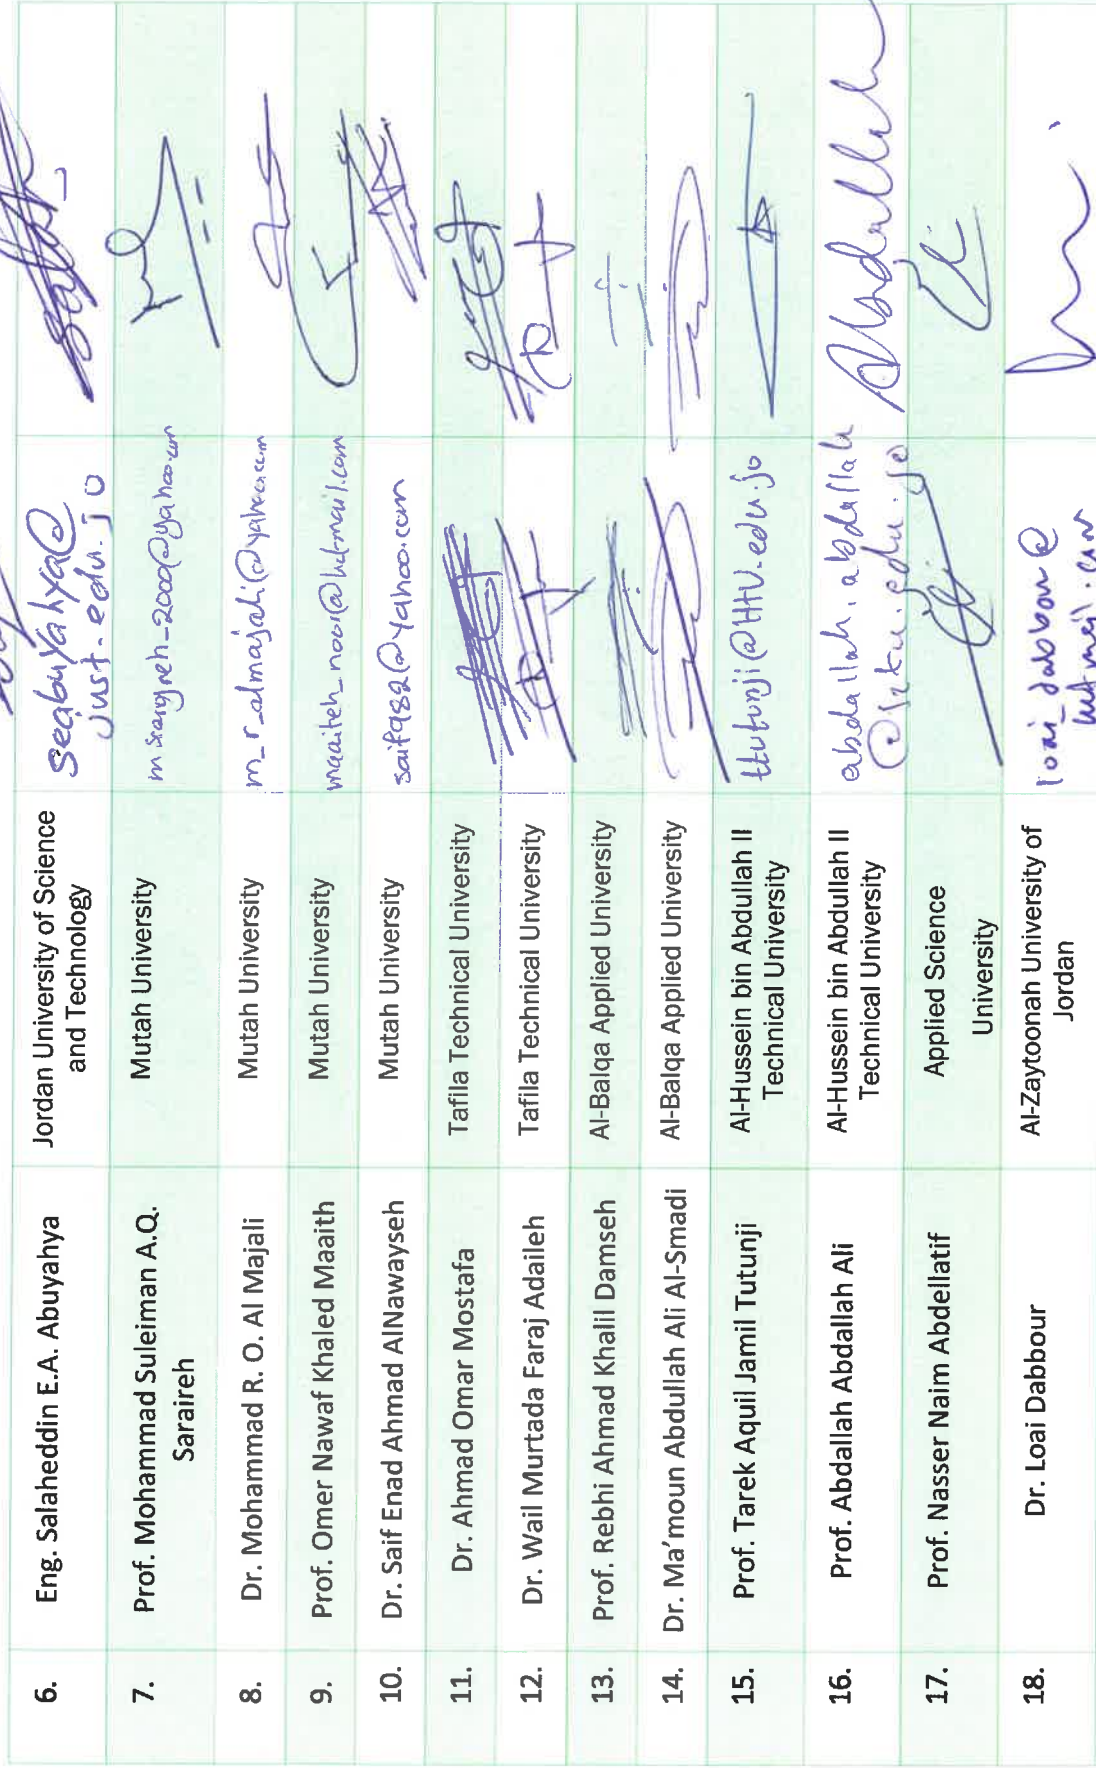 6. Eng. Salaheddin E.A. Abuyahya Jordan University of Science seabuyahya@
and Technology just.edu.jo
7. Prof. Mohammad Suleiman A.Q. Mutah University
Saraireh
8. Dr. Mohammad R. O. Al Majali Mutah University m_r_almajali@yahoo.com
9. Prof. Omer Nawaf Khaled Maaith Mutah University maaiteh_noor@hotmail.com
10. Dr. Saif Enad Ahmad AlNawayseh Mutah University saif982@yahoo.com
11. Dr. Ahmad Omar Mostafa Tafila Technical University
12. Dr. Wail Murtada Faraj Adaileh Tafila Technical University
13. Prof. Rebhi Ahmad Khalil Damseh Al-Balqa Applied University
14. Dr. Ma’moun Abdullah Ali Al-Smadi Al-Balqa Applied University
15. Prof. Tarek Aquil Jamil Tutunji Al-Hussein bin Abdullah II ttutunji@Htu.edu.jo
Technical University
16. Prof. Abdallah Abdallah Ali Al-Hussein bin Abdullah II abdallah.abdallah Abdallah
Technical University
17. Prof. Nasser Naim Abdellatif Applied Science
University
18. Dr. Loai Dabbour Al-Zaytoonah University of loai_dabbour@
Jordan hotmail.com